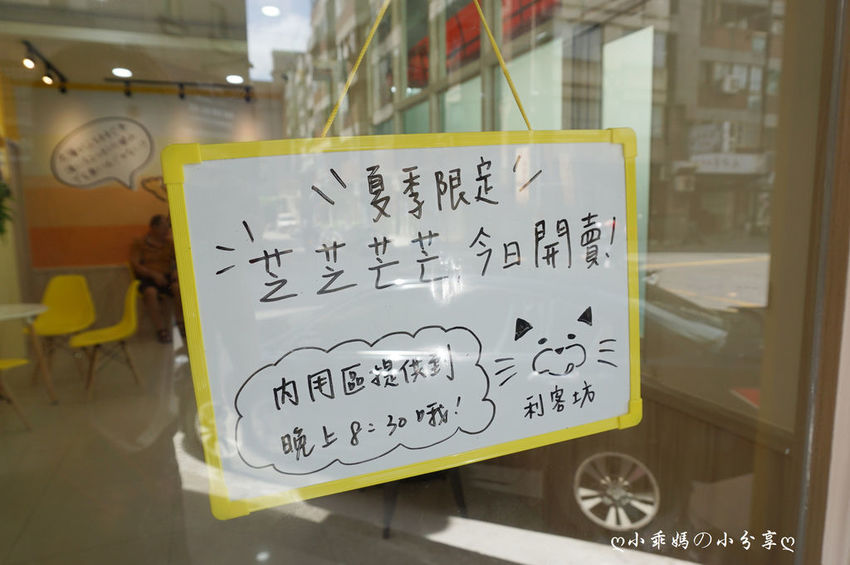 夏季限定
芝芝芒芒,今日開賣!
內用區提供到
晚上8:30哦!
利客坊
ღ小乖媽の小分享ღ